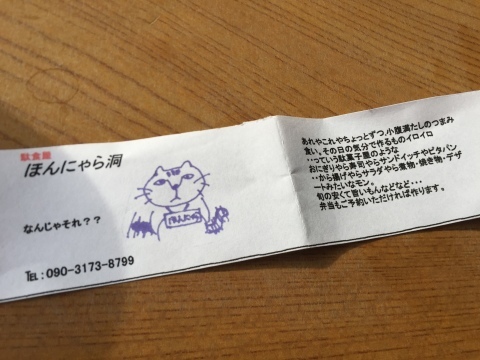 駄食屋
ほんにゃら洞
なんじゃそれ？？
TEL：090-3173-8799
ほんにゃら
あれやこれやちょっとずつ、小腹満たしのつまみ
食い、その日の気分で作るものイロイロ
‥っていう駄菓子屋のような
おにぎりやら寿司やらサンドイッチやピタパン
‥から揚げやらサラダやら煮物・焼き物・デザ
ートみたいなモン。
旬の安くて旨いもんなどなど・・・
弁当もご予約いただければ作ります。